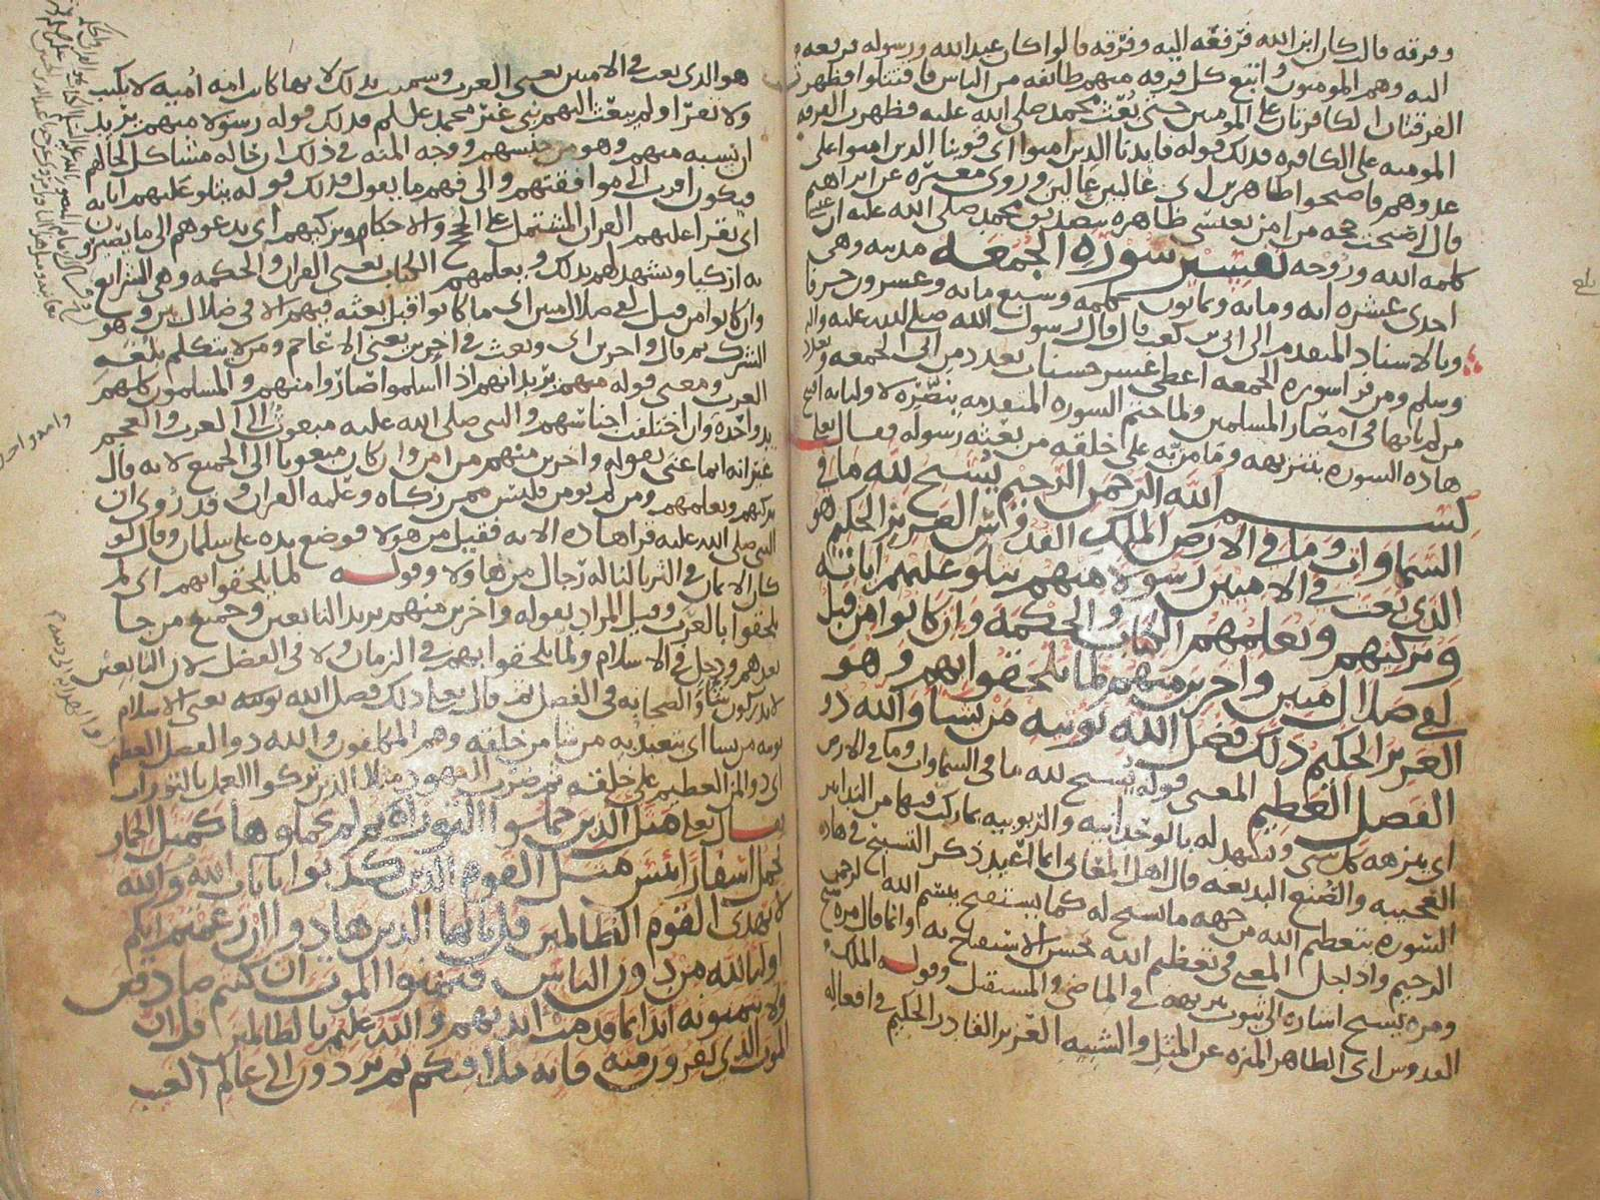 وفرقه قالت كان ابن الله فرفعه اليه وفرقه قالوا كان عبد الله ورسوله فرفعه
اليه وهم المومنون واتبع كل فرقه منهم طائفه من الناس فاقتتلوا فظهرت
الفرقتان الكافرتان على المومنين حتى بعث محمد صلى الله عليه فظهرت الفرقه
المومنه على الكافره فذلك قوله فايدنا الذين امنوا اي قوينا الذين امنوا على
عدوهم فاصبحوا ظاهرين اي غالبين عالين وروى مغيره عن ابراهيم
قال اصبحت حجه من امن بعيسى ظاهره بتصديق محمد صلى الله عليه ان عيسى
كلمه الله وروحه تفسير سورة الجمعه مدنيه وهي
احدى عشره ايه ومايه وثمانون كلمه وسبع مايه وعشرون حرفا
وبالاسناد المتقدم الى ابي بن كعب قال قال رسول الله صلى الله عليه واله
وسلم ومن قرا سوره الجمعه اعطي عشر حسنات بعدد من اتى الجمعه وبعدد
من لم ياتها في امصار المسلمين ولما ختم السوره المتقدمه بنصره لاوليايه افتتح
هاذه السوره بتنزيهه وما من به على خلقه من بعثه رسوله فقال تعالى
بسم الله الرحمن الرحيم يسبح لله ما في
السماوات وما في الارض الملك القدوس العزيز الحكيم هو
الذي بعث في الاميين رسولا منهم يتلو عليهم اياته
ويزكيهم ويعلمهم الكتاب والحكمه وان كانوا من قبل
لفي ضلال مبين واخرين منهم لما يلحقوا بهم وهو
العزيز الحكيم ذلك فضل الله يوتيه من يشا والله ذو
الفضل العظيم المعنى قوله يسبح لله ما في السماوات وما في الارض
اي ينزهه كل شي ويشهد له بالوحدانيه والربوبيه بما ركب فيها من التدابير
العجيبه والصنع البديعه قال اهل المعاني انما اعيد ذكر التسبيح في هاذه
السوره بتعظيم الله من جهه ما يسبح له كما يستفتح ببسم الله الرحمن
الرحيم واذا جل المعنى في تعظيم الله حسن الاستفتاح به وانما قال مره سبح
ومره يسبح اشاره الى ثبوت تنزيهه في الماضي والمستقبل وقوله الملك
القدوس اي الطاهر المنزه عن المثل والشبيه العزيز القادر الحكيم في افعاله
هو الذي بعث في الاميين يعني العرب وسميت بذلك لانها كانت امه أميه لا يكتب
ولا تقرا ولم يبعث اليهم نبي غير محمد علسلم فذلك قوله رسولا منهم يريد
ان نسبه منهم وهو من جنسهم ووجه المنه في ذلك ان حاله مشاكل لحالهم
فيكون اقرب الى موافقتهم والى فهم ما يقول فذلك قوله يتلو عليهم اياته
اي يقرا عليهم القران المشتمل على الحجج والاحكام ويزكيهم اي يدعوهم الى ما يصيرون
به ازكيا ويشهد لهم بذلك ويعلمهم الكتاب يعني القران والحكمه وهي الشرايع
وان كانوا من قبل لفي ضلال مبين اي ما كانوا قبل بعثه فيهم الا في ضلال بين وهو
الشرك ثم قال واخرين اي وبعث في اخرين يعني الاعاجم ومن لا يتكلم بلغه
العرب ومعنى قوله منهم يريد انهم اذا اسلموا صاروا منهم والمسلمون كلهم
يد واحده وان اختلفت اجناسهم والنبي صلى الله عليه مبعوث الى العرب والعجم
غير انه انما عنى بقوله واخرين منهم من امن وان كان مبعوثا الى الجميع لانه قال
يزكيهم ويعلمهم ومن لم يومن فليس ممن زكاه وعلمه القران وقد روي ان
النبي صلى الله عليه قرا هاذه الايه فقيل من هولا فوضع يده على سلمان وقال لو
كان الايمان في الثريا لناله رجال من هاولا وقوله لما يلحقوا بهم اي لم
يلحقوا بالعرب وقيل المراد بقوله واخرين منهم يريد التابعين وجميع من جا
بعدهم ودخل في الاسلام ولما يلحقوا بهم في الزمان ولا في الفضل لان التابعين
لا يدركون شاو الصحابه في الفضل ثم قال تعالى ذلك فضل الله يوتيه يعني الاسلام
يوتيه من يشا اي يتعبد به من شا من خلقه وهم المكلفون والله ذو الفضل العظيم
اي ذو المن العظيم على خلقه ثم ضرب اليهود مثلا الذين تركوا العمل بالتورات
فقال تعالى مثل الذين حملوا التوراه ثم لم يحملوها كمثل الحمار
يحمل اسفارا بئس مثل القوم الذين كذبوا بايات الله والله
لا يهدي القوم الظالمين قل ياايها الذين هادوا ان زعمتم انكم
اوليا لله من دون الناس فتمنوا الموت ان كنتم صادقين
ولا يتمنونه ابدا بما قدمت ايديهم والله عليم بالظالمين قل ان
الموت الذي تفرون منه فانه ملاقيكم ثم تردون الى عالم الغيب